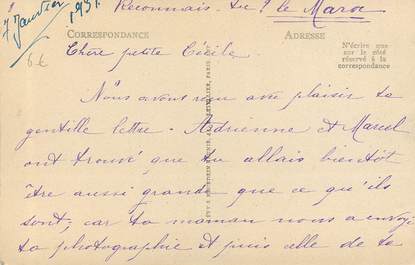 7 Janvier 1931
Reconnais-tu ? le Maroc
CORRESPONDANCE
ADRESSE
6€
N'écrire que
sur le côté
réservé à la
correspondance
Chère petite Cécile
Nous avons reçu avec plaisir ta
gentille lettre. Adrienne et Marcel
ont trouvé que tu allais bientôt
être aussi grande que ce qu'ils
sont, car ta maman nous a envoyé
ta photographie et puis celle de ta